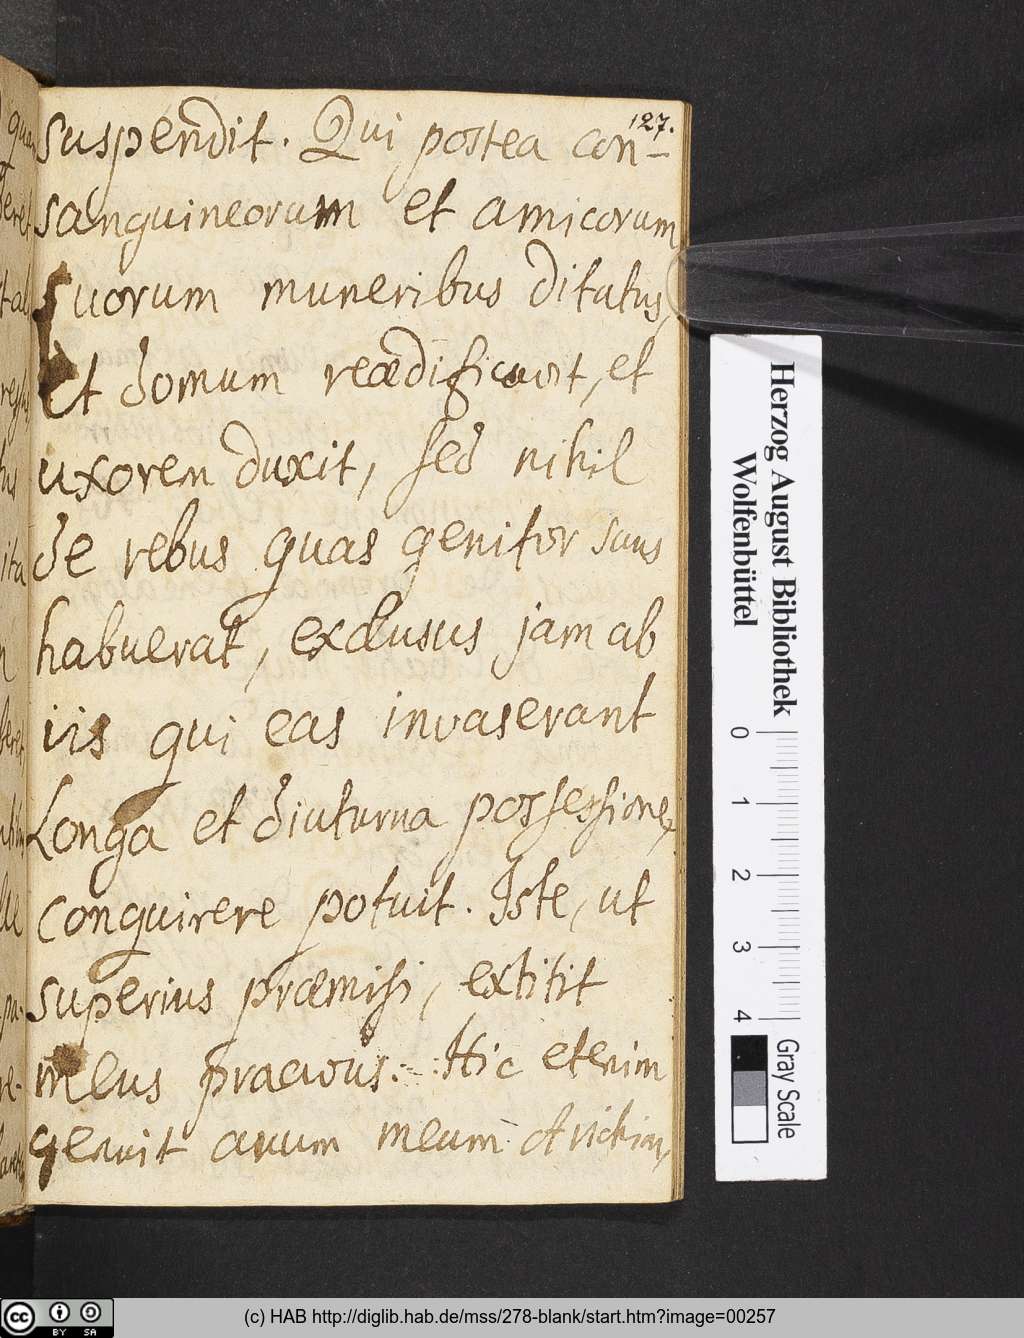 127.
suspendit. Qui postea con-
sanguineorum et amicorum
suorum muneribus ditatus,
et domum reædificavit, et
uxorem duxit, sed nihil
de rebus quas genitor suus
habuerat, exclusus jam ab
iis qui eas invaserant
Longa et diuturna possessione,
conquirere potuit. Iste, ut
superius præmisi, extitit
meus proavus. Hic etenim
genuit avum meum Arichim,
Herzog August Bibliothek
Wolfenbüttel
0 1 2 3 4
Gray Scale
cc BY SA
(c) HAB http://diglib.hab.de/mss/278-blank/start.htm?image=00257